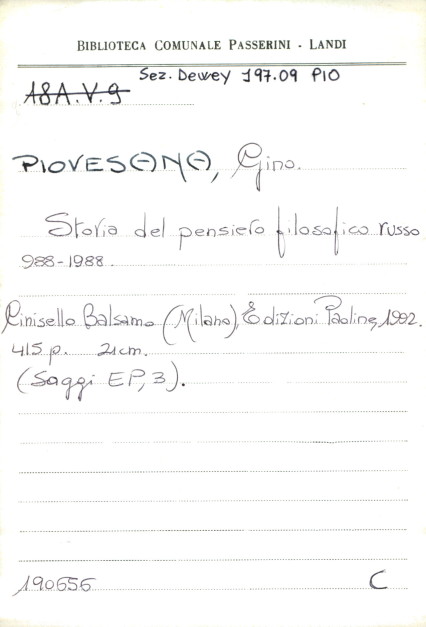 BIBLIOTECA COMUNALE PASSERINI - LANDI
Sez. Dewey 197.09 PIO
18A.V.9
PIOVESANA, Gino.
Storia del pensiero filosofico russo
988-1988.
Cinisello Balsamo (Milano), Edizioni Paoline, 1992.
415 p. 21 cm.
(Saggi EP, 3).
190656 C